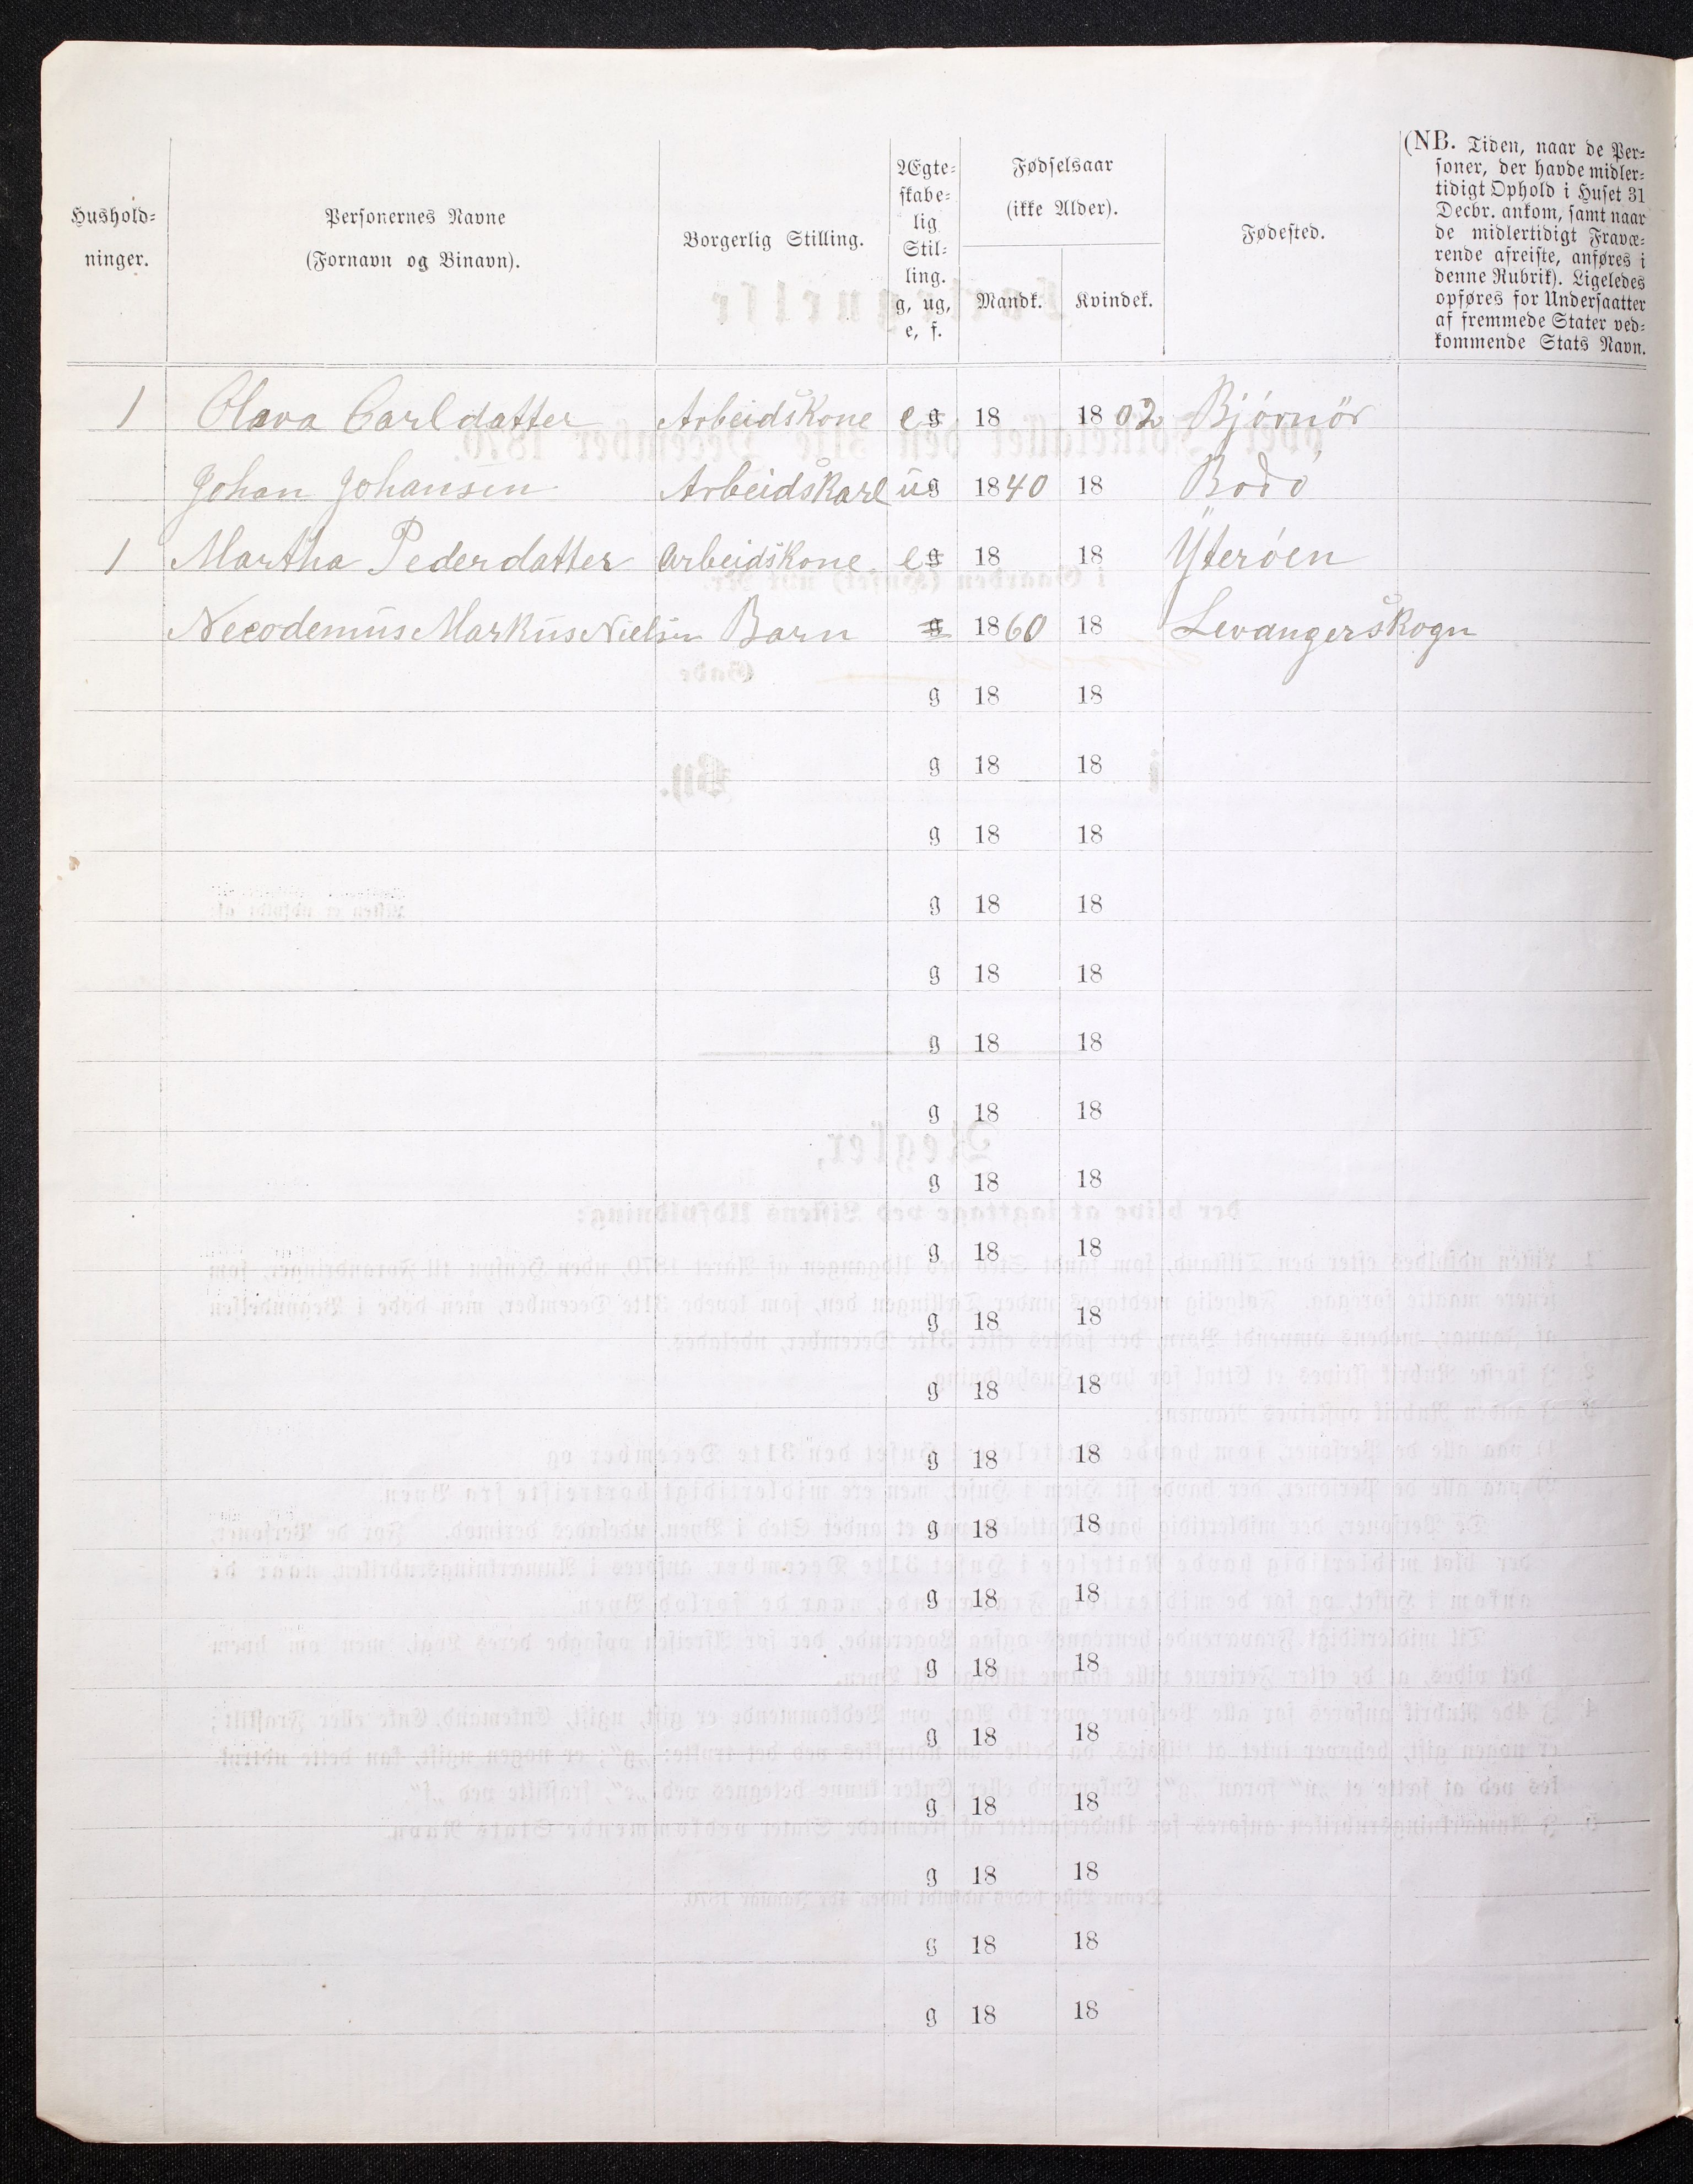 Hushold-
ninger.
Personernes Navne
(Fornavn og Binavn).
Borgerlig Stilling.
Ægte-
skabe-
lig
Stil-
ling.
g, ug,
e, f.
Fødselsaar
(ikke Alder).
Mandk. Kvindek.
Fødested.
(NB. Tiden, naar de Per-
soner, der havde midler-
tidigt Ophold i Huset 31
Decbr. ankom, samt naar
de midlertidigt Fravæ-
rende afreiste, anføres i
denne Rubrik). Ligeledes
opføres for Undersaatter
af fremmede Stater ved-
kommende Stats Navn.
1 Olava Carldatter Arbeidskone e g 18 1802 Bjórnör
Johan Johansen Arbeidskarl ug 1840 18 Bodó
1 Martha Pederdatter Arbeidskone e g 18 18 Ÿteróen
Necodemus Markus Nielsen Barn g 1860 18 Levangerskogn
g 18 18
g 18 18
g 18 18
g 18 18
g 18 18
g 18 18
g 18 18
g 18 18
g 18 18
g 18 18
g 18 18
g 18 18
g 18 18
g 18 18
g 18 18
g 18 18
g 18 18
g 18 18
g 18 18
g 18 18